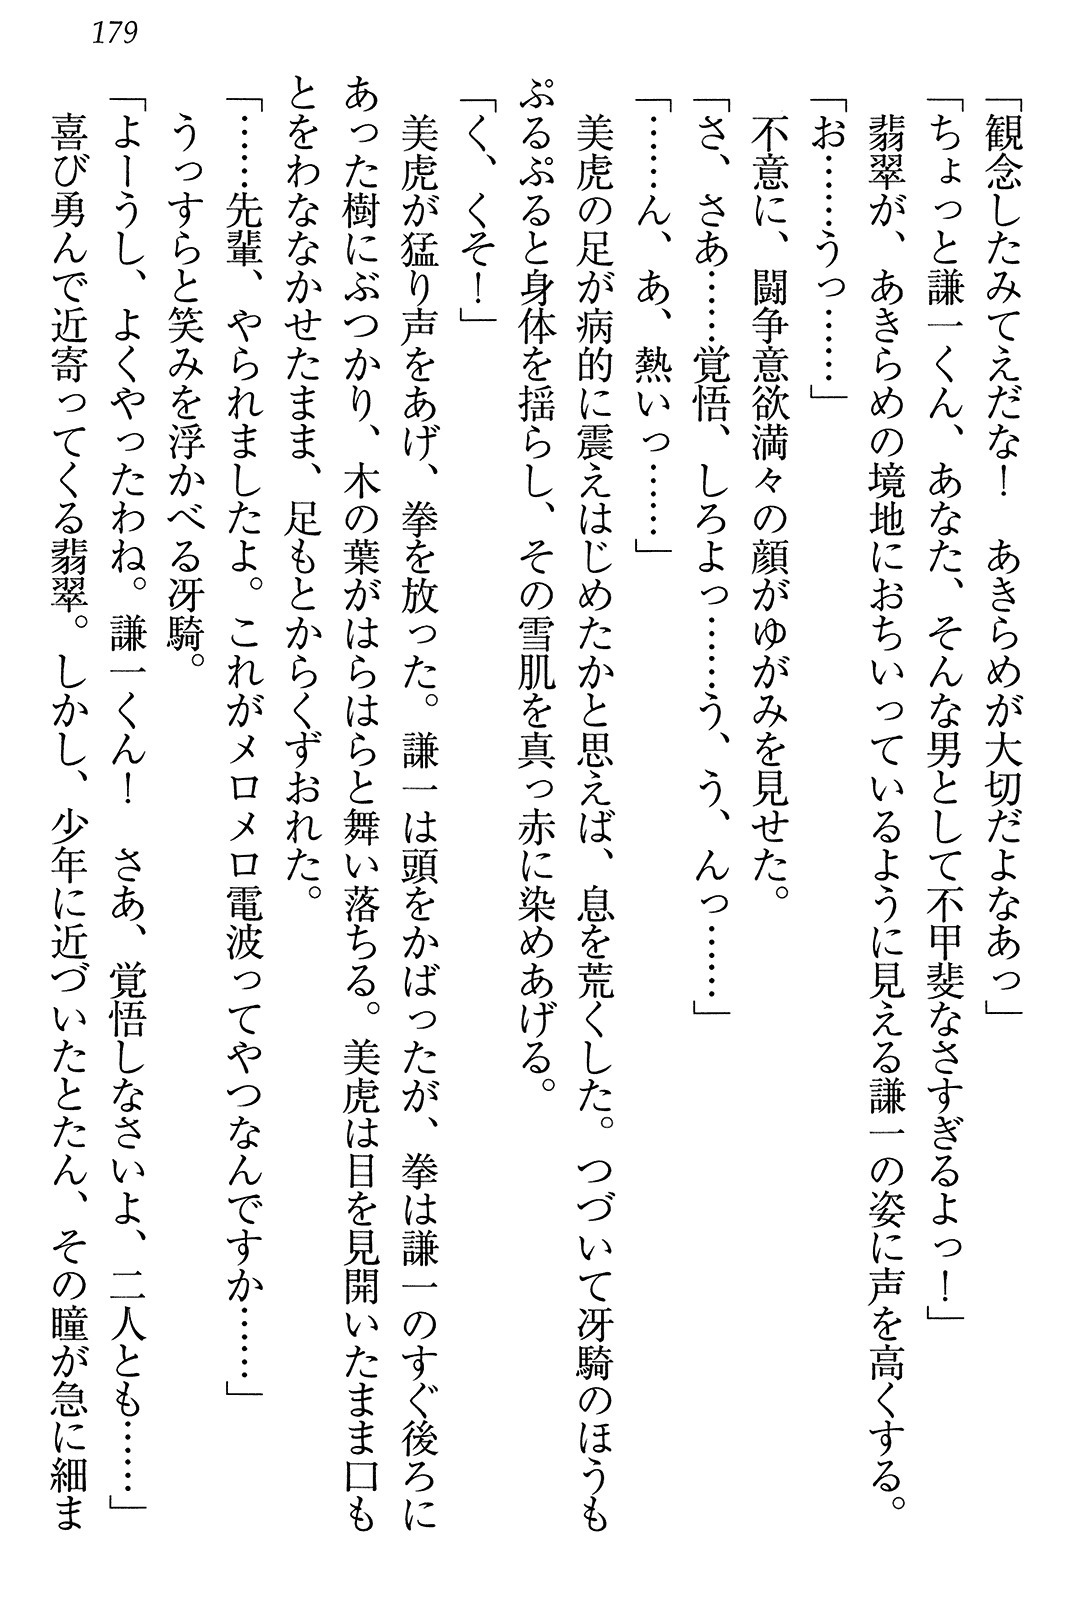 179
「観念したみてえだな！　あきらめが大切だよなあっ」
「ちょっと謙一くん、あなた、そんな男として不甲斐なさすぎるよっ！」
　翡翠が、あきらめの境地におちいっているように見える謙一の姿に声を高くする。
「お……うっ……」
　不意に、闘争意欲満々の顔がゆがみを見せた。
「さ、さあ……覚悟、しろよっ……う、う、んっ……」
「……ん、あ、熱いっ……」
　美虎の足が病的に震えはじめたかと思えば、息を荒くした。つづいて冴騎のほうも
ぷるぷると身体を揺らし、その雪肌を真っ赤に染めあげる。
「く、くそ！」
　美虎が猛り声をあげ、拳を放った。謙一は頭をかばったが、拳は謙一のすぐ後ろに
あった樹にぶつかり、木の葉がはらはらと舞い落ちる。美虎は目を見開いたまま口も
とをわななかせたまま、足もとからくずおれた。
「……先輩、やられましたよ。これがメロメロ電波ってやつなんですか……」
　うっすらと笑みを浮かべる冴騎。
「よーうし、よくやったわね。謙一くん！　さあ、覚悟しなさいよ、二人とも……」
　喜び勇んで近寄ってくる翡翠。しかし、少年に近づいたとたん、その瞳が急に細ま